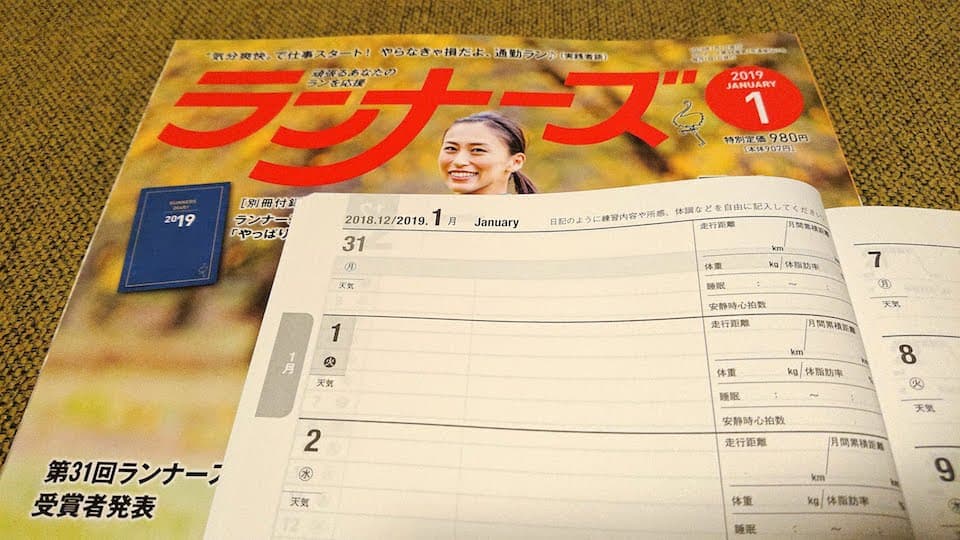 "気分爽快"で仕事スタート! やらなきゃ損だよ、通勤ラン♪(実践者談)
頑張るあなたの
ランを応援
ランナーズ
2019
JANUARY
1
特別定価980円
[本体907円]
RUNNERS
DIARY
2019
[別冊付録
ランナー
「やっぱり
第31回ランナーズ
受賞者発表
2018.12/2019.1月 January 日記のように練習内容や所感、体調などを自由に記入してください。
31
月
天気
走行距離 月間累積距離
km
体重 kg 体脂肪率
睡眠 : 〜 :
安静時心拍数
1月
1
火
天気
走行距離 月間累積距離
km km
体重 kg 体脂肪率
睡眠 : 〜 :
安静時心拍数
2
水
天気
走行距離 月間累積距離
km km
体重 kg 体脂肪率
睡眠 : 〜 :
7
月
天気
8
火
天気
9